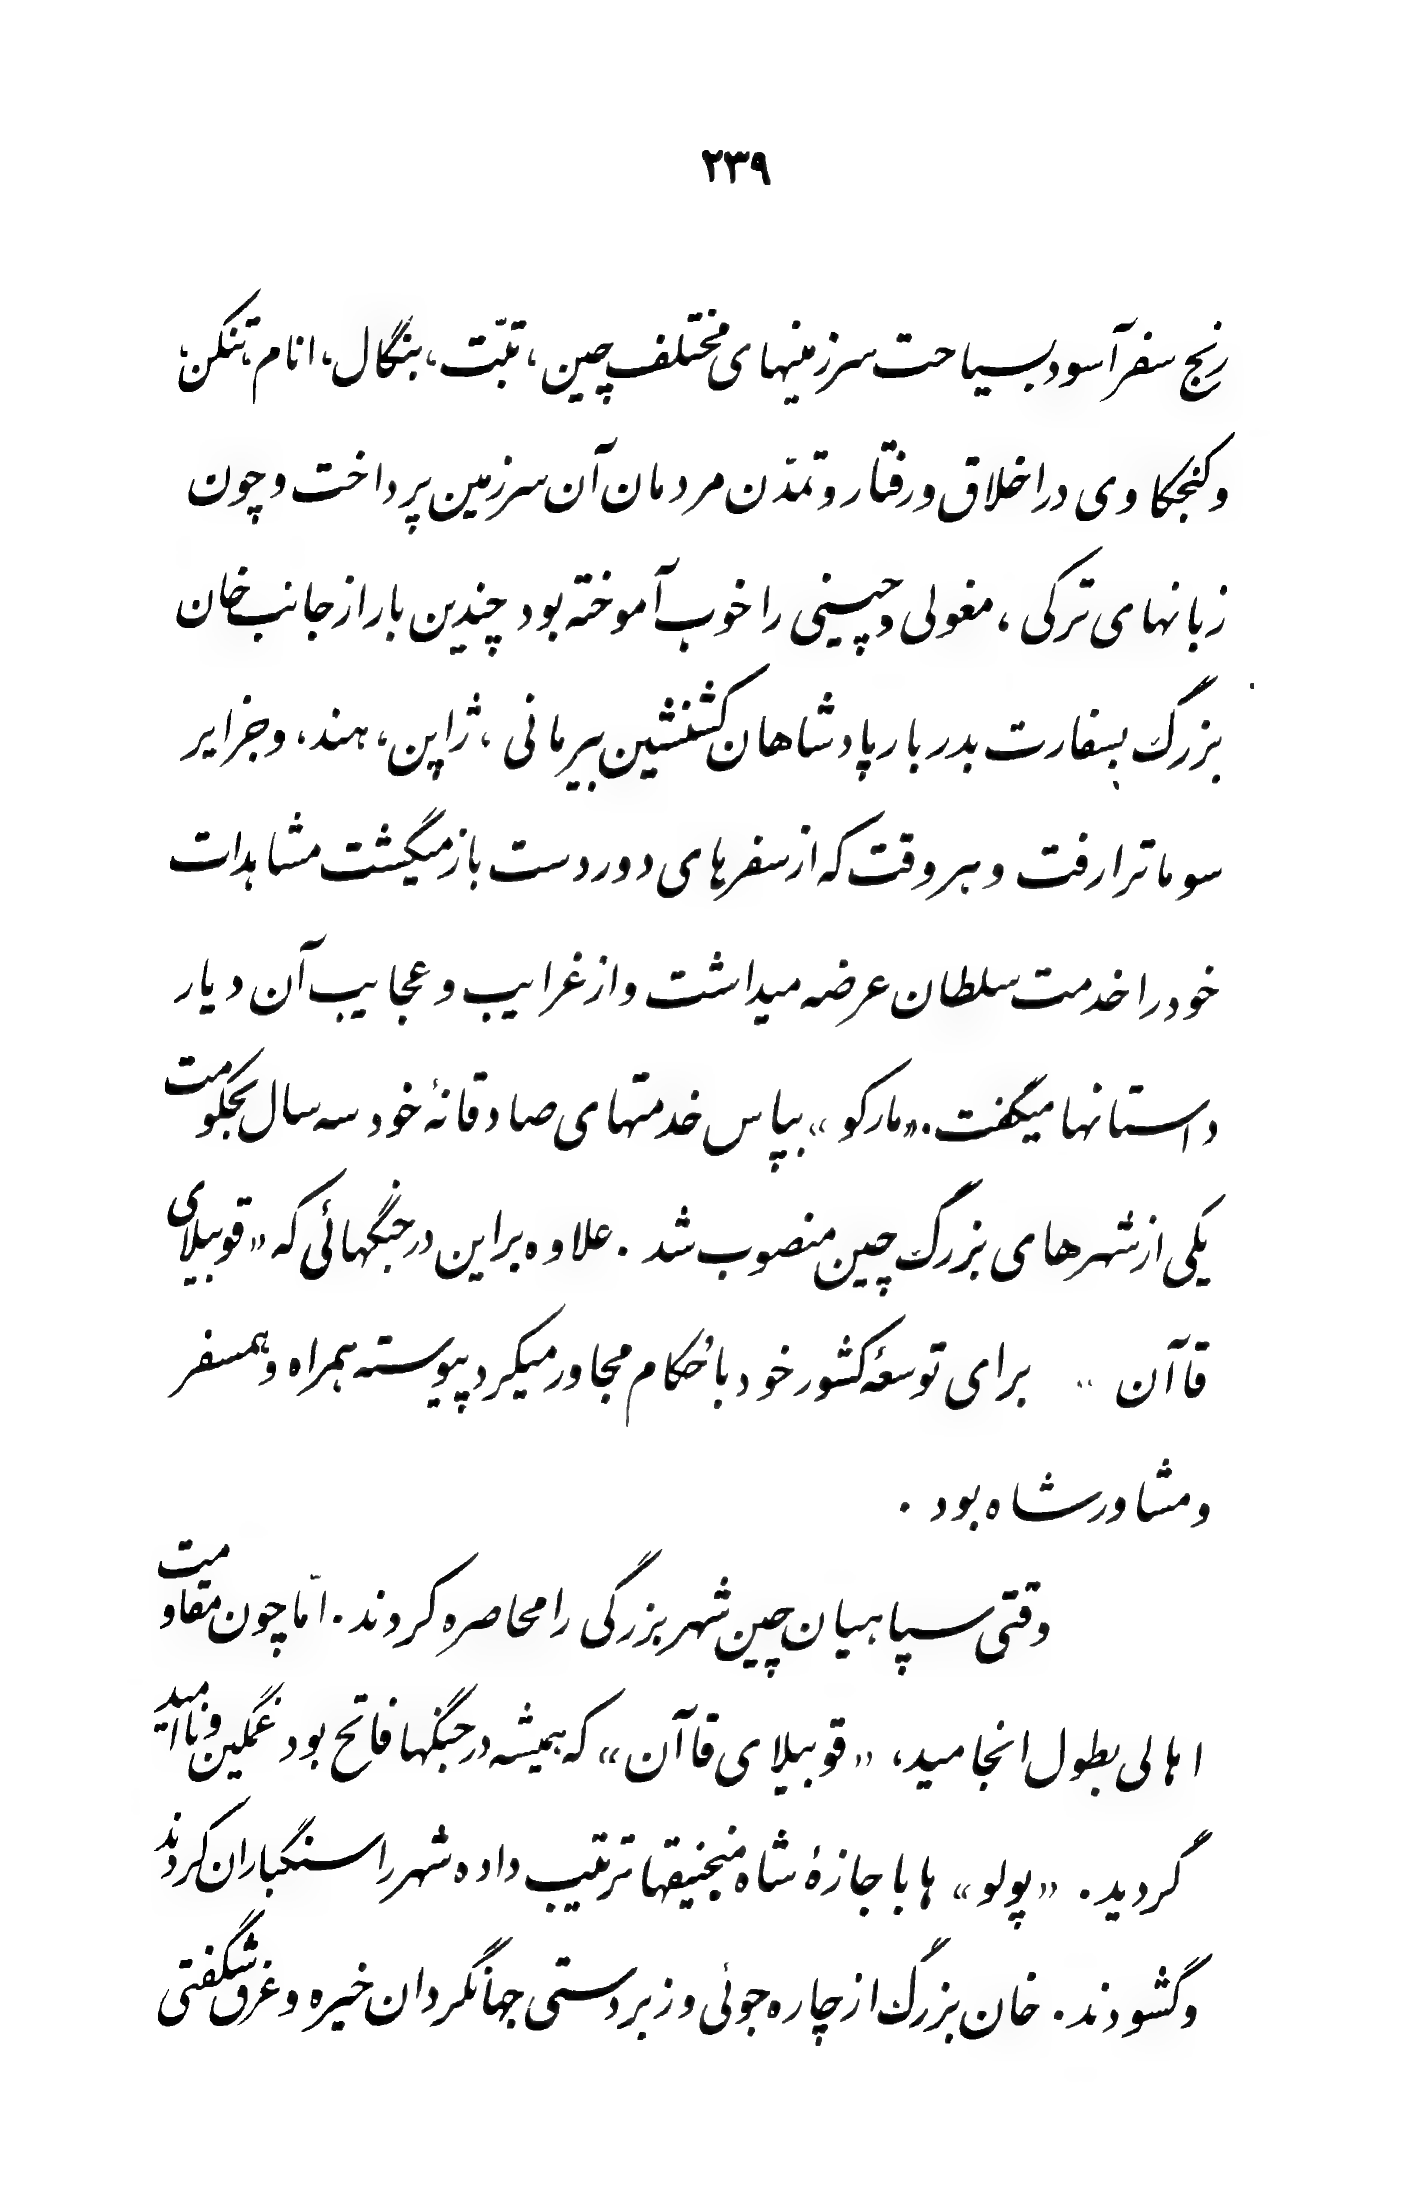 ۲۳۹
رنج سفر آسود بسیاحت سرزمینهای مختلف چین ، تبّت ، بنگال ، انام ، تنکن ،
و کنجکاوی در اخلاق و رفتار و تمدّن مردمان آن سرزمین پرداخت و چون
زبانهای ترکی ، مغولی و چینی را خوب آموخته بود چندین بار از جانب خان
بزرگ بسفارت بدربار پادشاهان کشنشین بیرمانی ، ژاپن ، هند ، و جزایر
سوماترا رفت و هر وقت که از سفرهای دوردست بازمیگشت مشاهدات
خود را خدمت سلطان عرضه میداشت و از غرایب و عجایب آن دیار
داستانها میگفت . «مارکو» بپاس خدمتهای صادقانهٔ خود سه سال بحکومت
یکی از شهرهای بزرگ چین منصوب شد . علاوه براین در جنگهائی که «قوبیلای
قاآن » برای توسعهٔ کشور خود با حُکام مجاور میکرد پیوسته همراه و همسفر
و مشاور شاه بود .
وقتی سپاهیان چین شهر بزرگی را محاصره کردند . امّا چون مقاومت
اهالی بطول انجامید ، «قوبیلای قاآن» که همیشه در جنگها فاتح بود غمگین و ناامید
گردید . «پولو» ها با جازهٔ شاه منجنیقها ترتیب داده شهر را سنگباران کردند
و گشودند . خان بزرگ از چاره جوئی و زبردستی جهانگردان خیره و غرق شگفتی